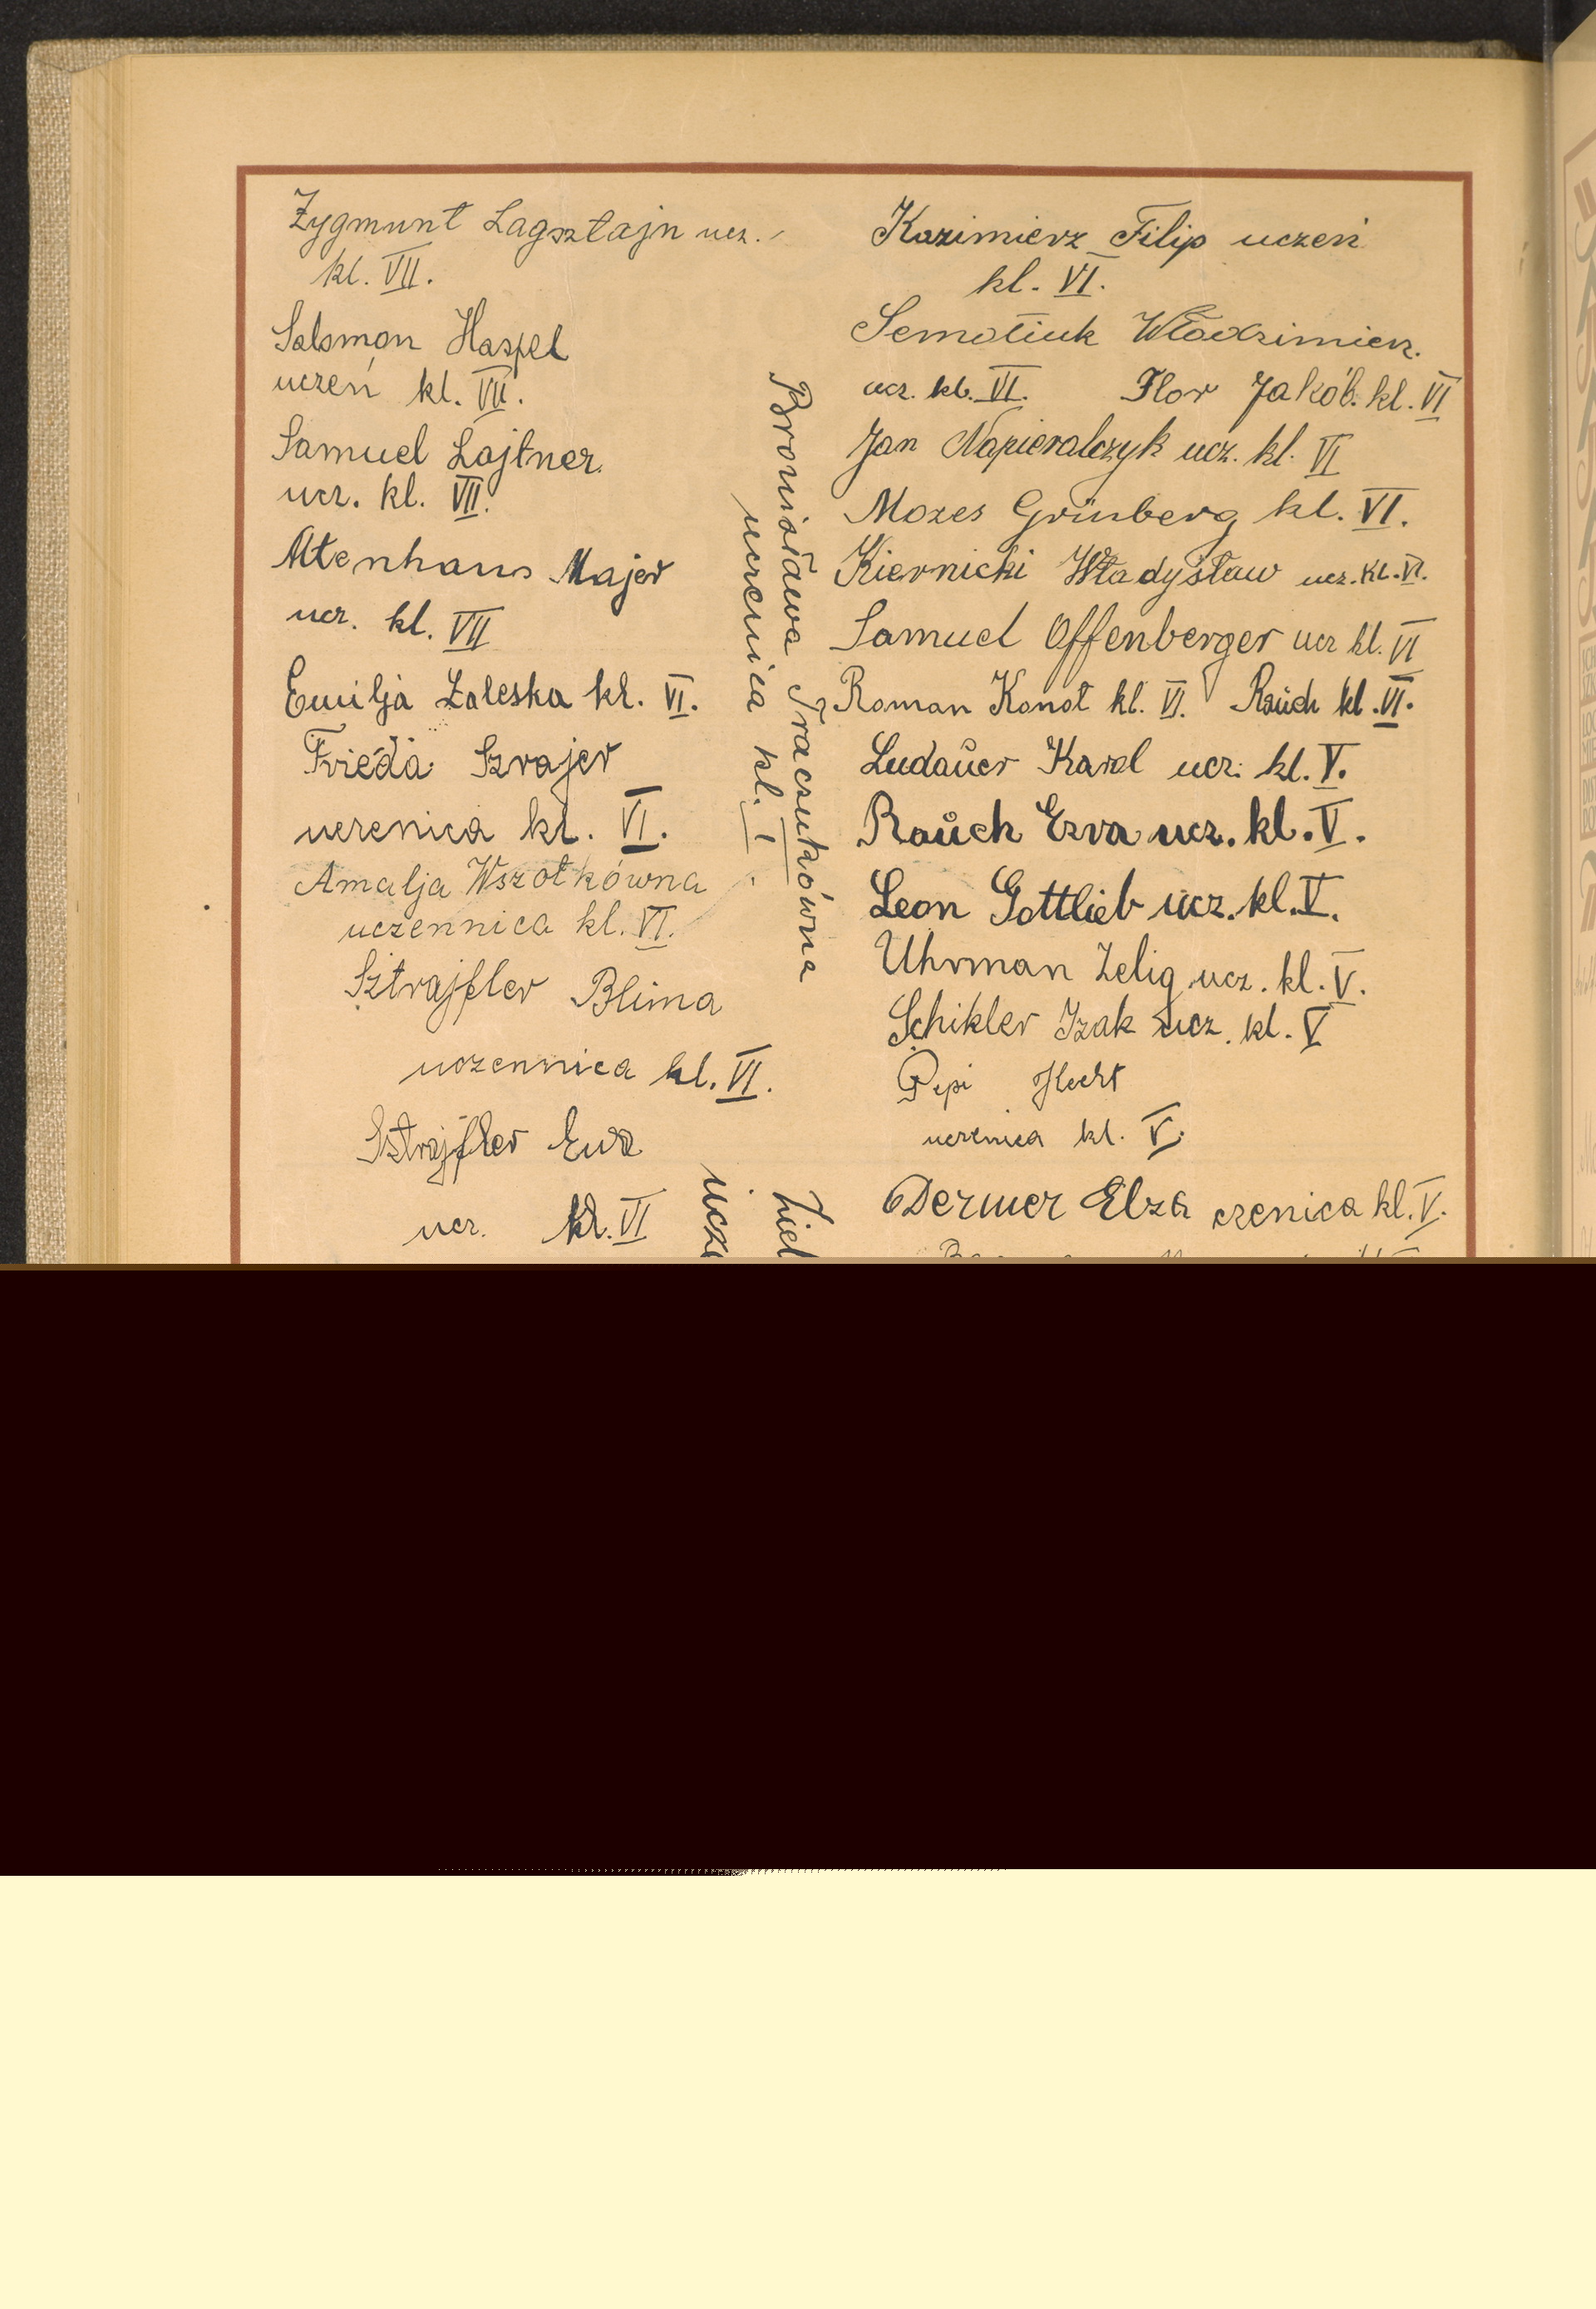 Zygmunt Lagsztajn ucz.
kl. VII.
Salomon Haspel
uczeń kl. VII.
Samuel Lajtner.
ucz. kl. VII.
Altenhaus Majer
ucz. kl. VII
Emilja Zaleska kl. VI.
Frieda Szrajer
uczenica kl. VI.
Amalja Wszołkówna
uczennica kl. VI.
Sztrajfler Blima
uczennica kl. VI.
Sztrajfler Ewa
ucz. kl. VI
Bronisława Traczukówna
uczenica kl. I.
Kazimierz Filip uczeń
kl. VI.
Semotiuk Włodzimierz.
ucz. kl. VI. Flor Jakób. kl. VI
Jan Napieralczyk ucz. kl. VI
Mozes Grünberg kl. VI.
Kiernicki Władysław ucz. kl. VI.
Samuel Offenberger ucz kl. VI
Roman Konot kl. VI. Rauch kl. VI.
Ludauer Karol ucz. kl. V.
Rauch Ezra ucz. kl. V.
Leon Gottlieb ucz. kl. V.
Uhrman Zelig ucz. kl. V.
Schikler Izak ucz. kl. V
Pepi Hecht
uczenica kl. V.
Dermer Elza czenica kl. V.